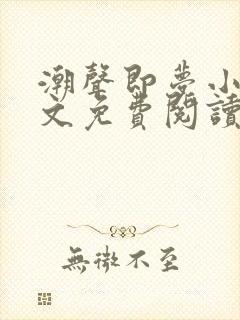 潮聲即夢小
文免費閱讀
無微不至